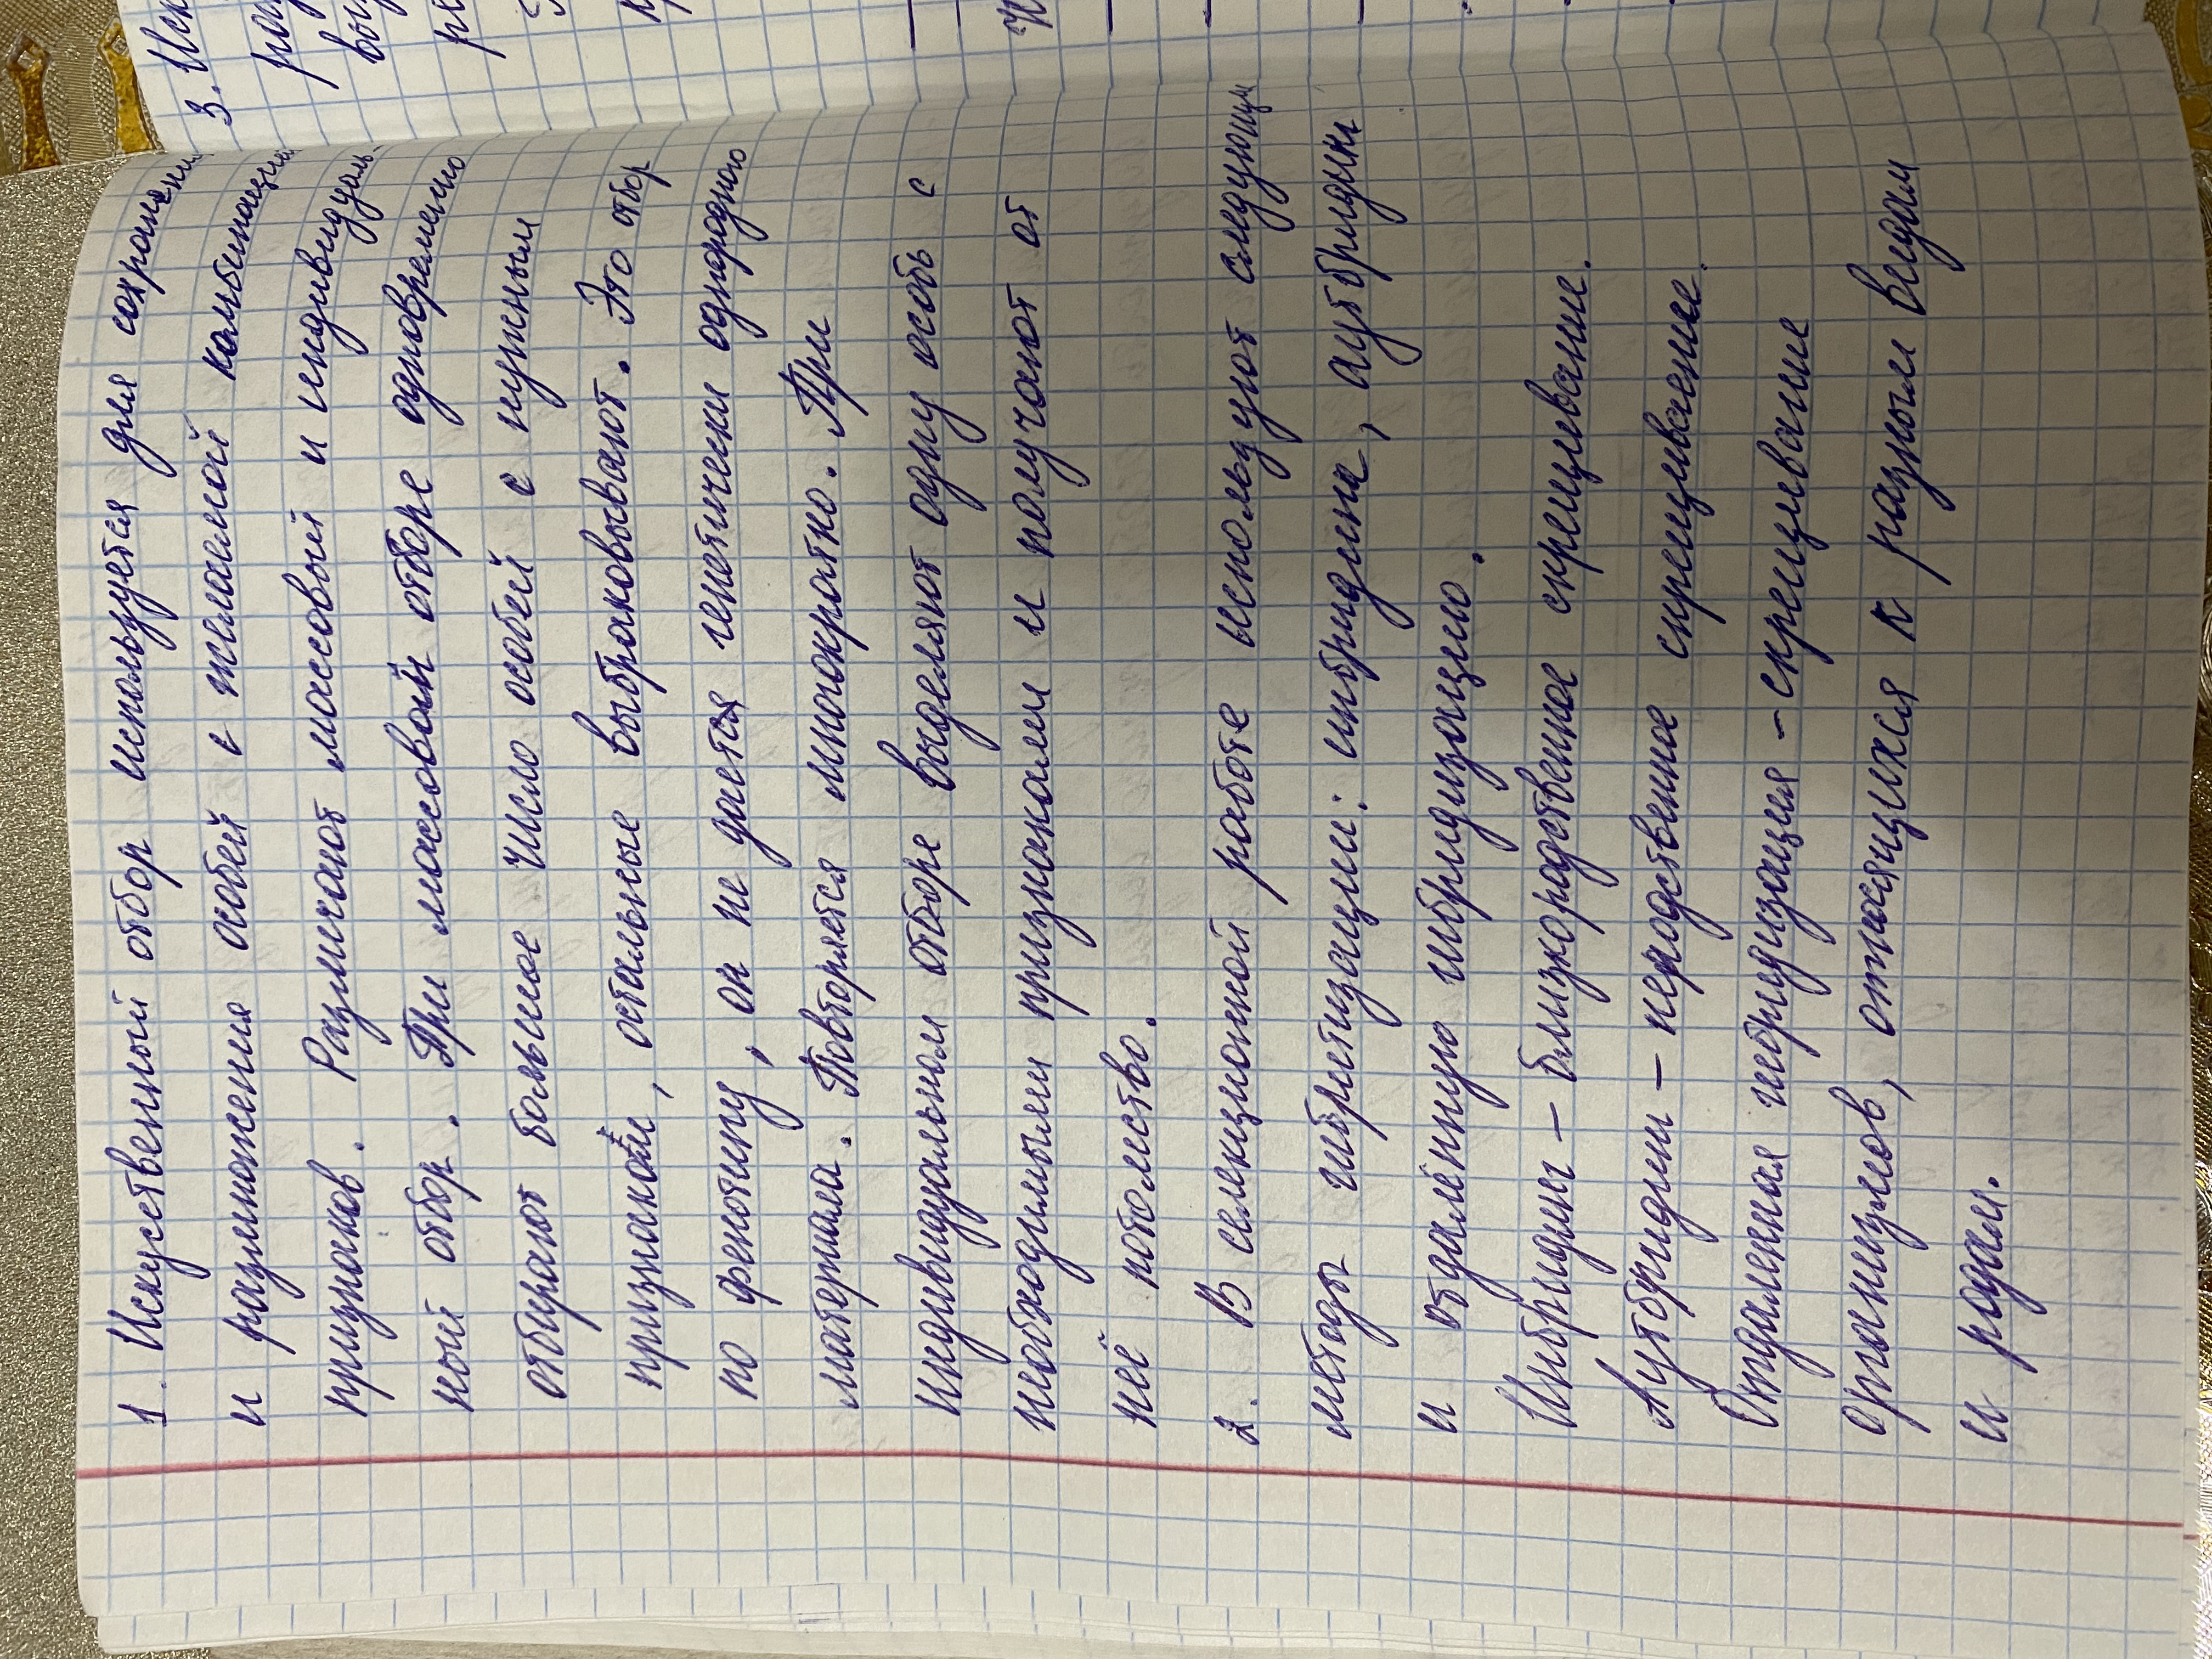 1. Искуственный отбор используется для сохранения
и размножения особей с желаемой комбинацией
признаков. Различают массовый и индивидуаль-
ный отбор. При массовом отборе одновременно
отбирают большое число особей с нужным
признаком, остальные выбраковывают. Это отбор
по фенотипу, он не дается генетически однородного
материала. Повторяется многократно. При
индивидуальном отборе выделяют одну особь с
необходимыми признаками и получают от
неё потомство.
2. В селекционной работе используют следующи
методы гибритизации: инбридинг, аутбридинг
и отдалённую гибридизацию.
Инбридинг - близкородственное скрещивание.
Аутбридинг - неродственное скрещивание.
Отдаленная гибридизация - скрещивание
организмов, относящихся к разным видам
и родам.
3. Иск